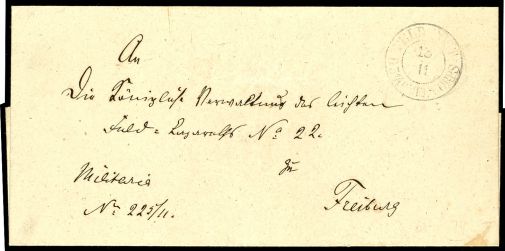 An
Die Königliche Verwaltung des leichten
Feld-Lazareths No 22.
zu
Militaria
Nr. 225/11.
Freiburg
23
11